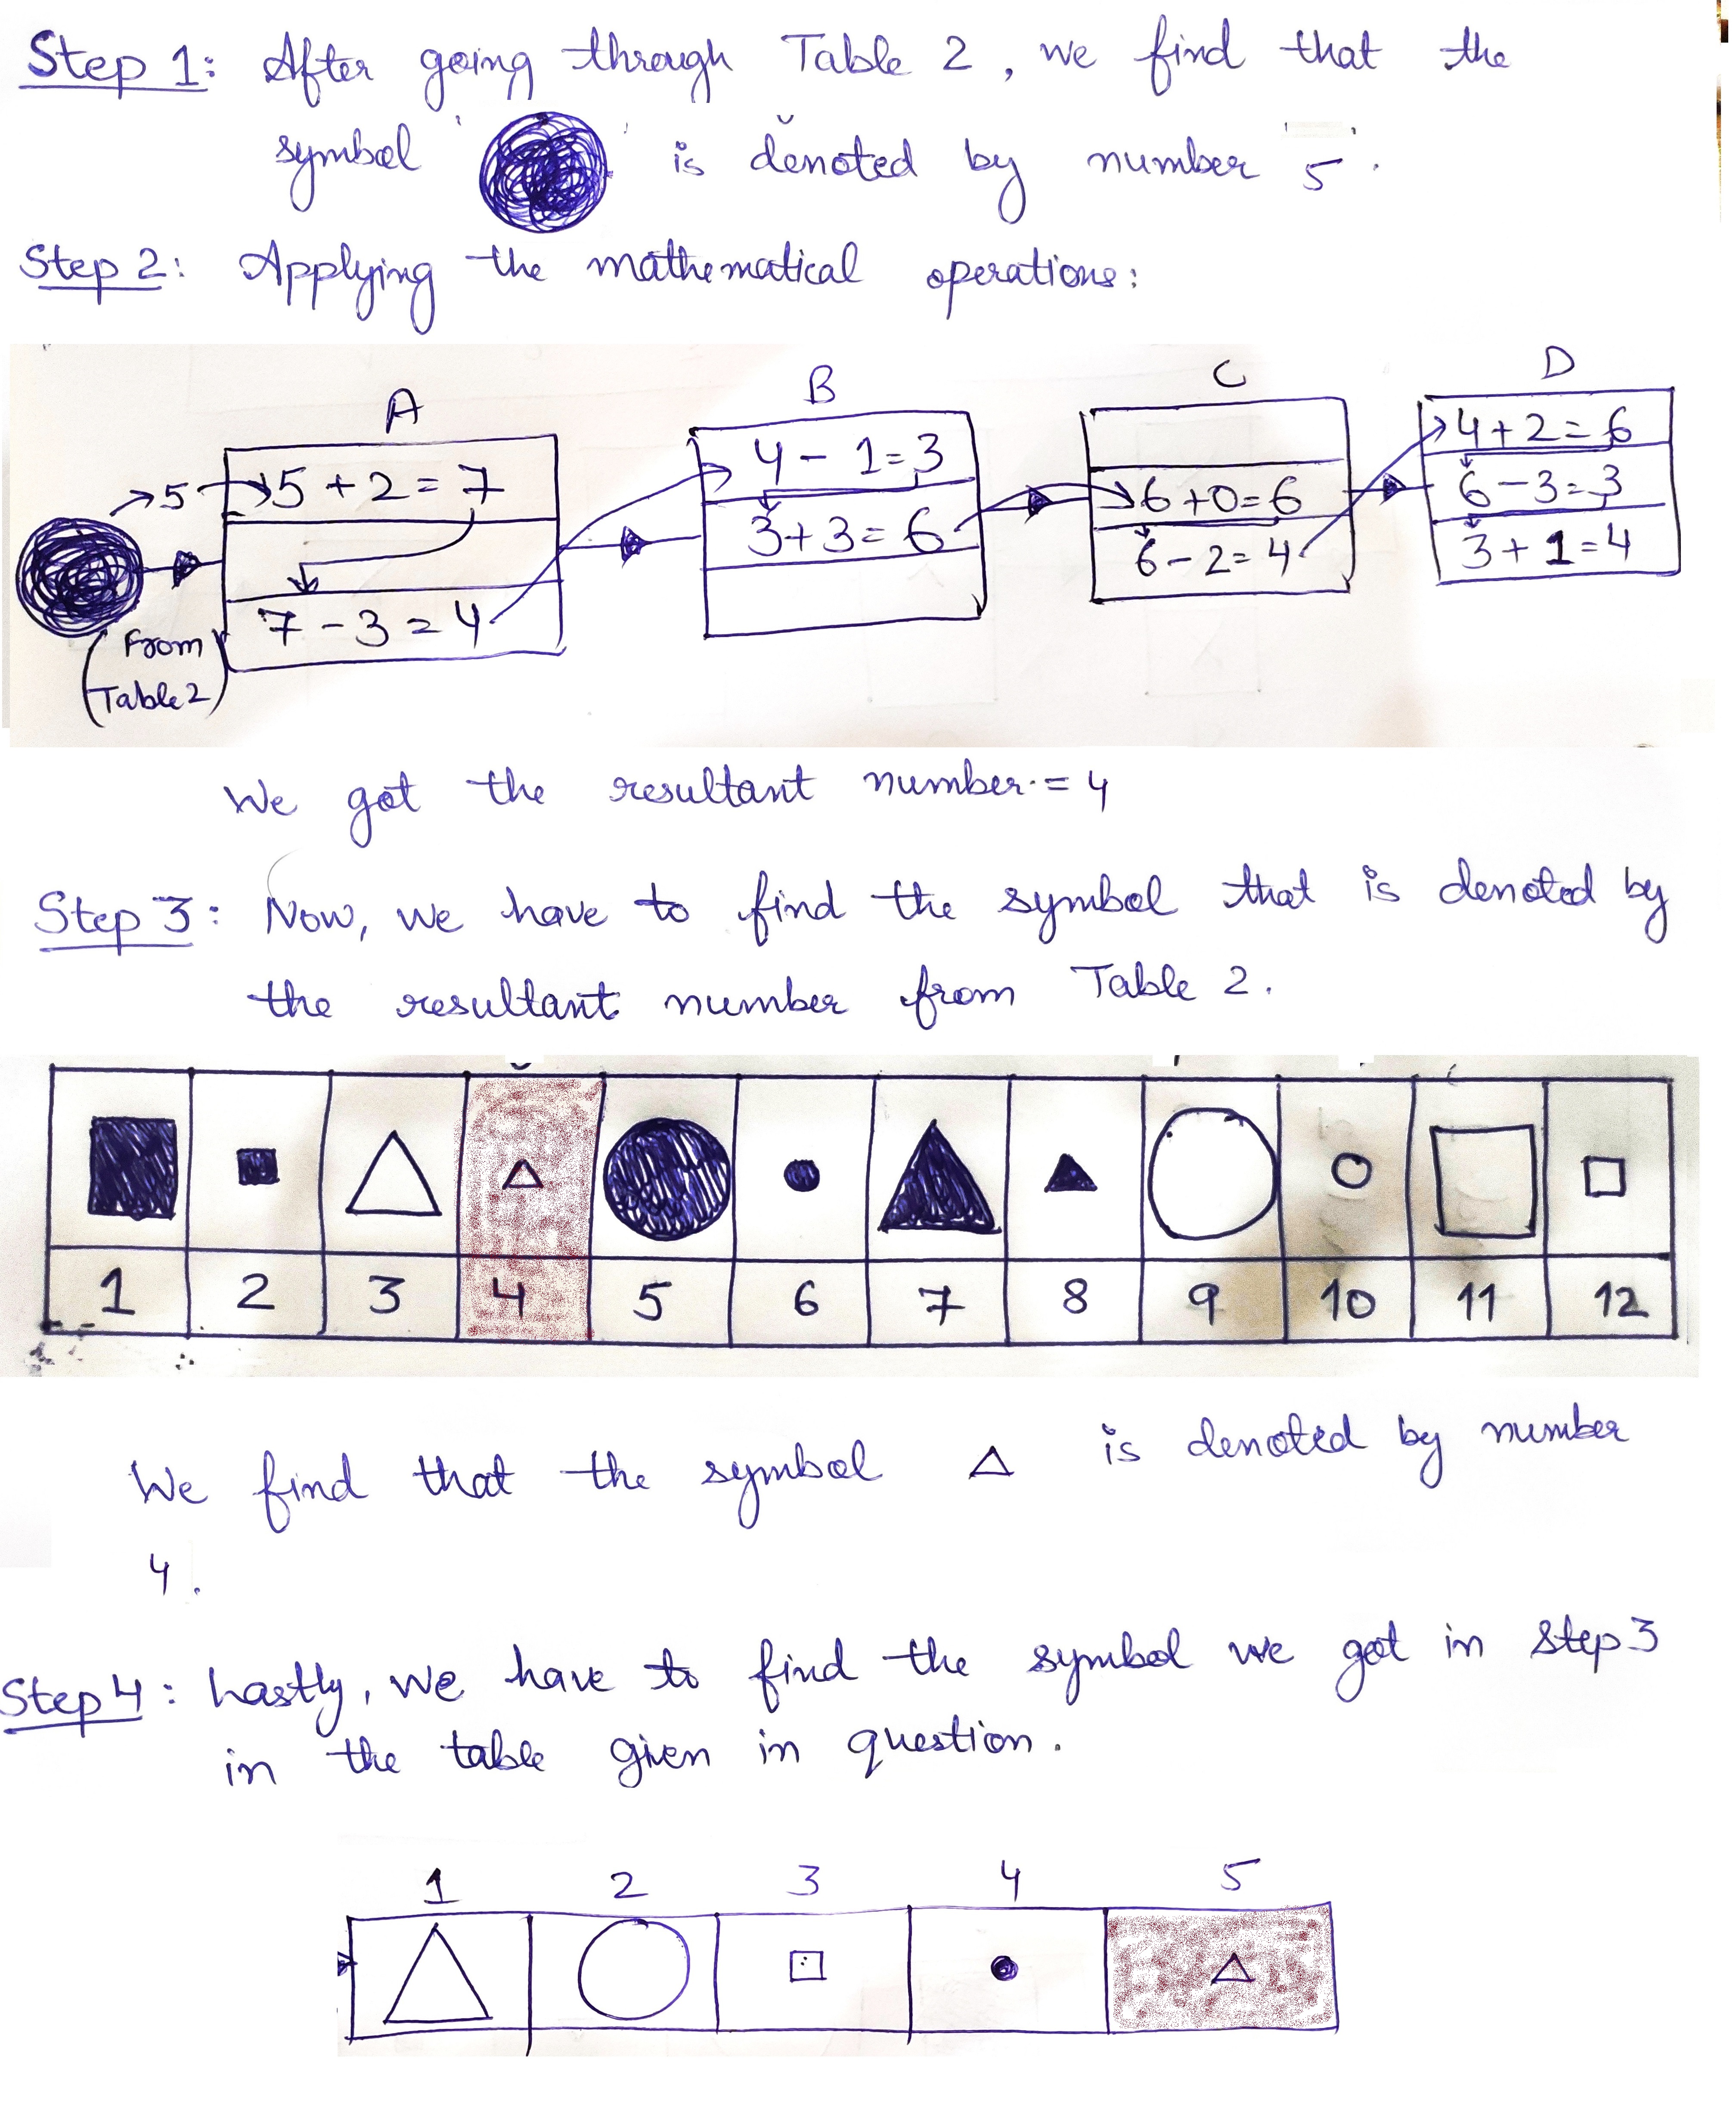 Step 1: After going through Table 2, we find that the
symbol ' ' is denoted by number '5'.
Step 2: Applying the mathematical operations:
A B C D
5 5+2=7 4-1=3 6+0=6 4+2=6
7-3=4 3+3=6 6-2=4 6-3=3
3+1=4
(From
Table 2)
We got the resultant number = 4
Step 3: Now, we have to find the symbol that is denoted by
the resultant number from Table 2.
1 2 3 4 5 6 7 8 9 10 11 12
We find that the symbol △ is denoted by number
4.
Step 4: Lastly, we have to find the symbol we got in step 3
in the table given in question.
1 2 3 4 5